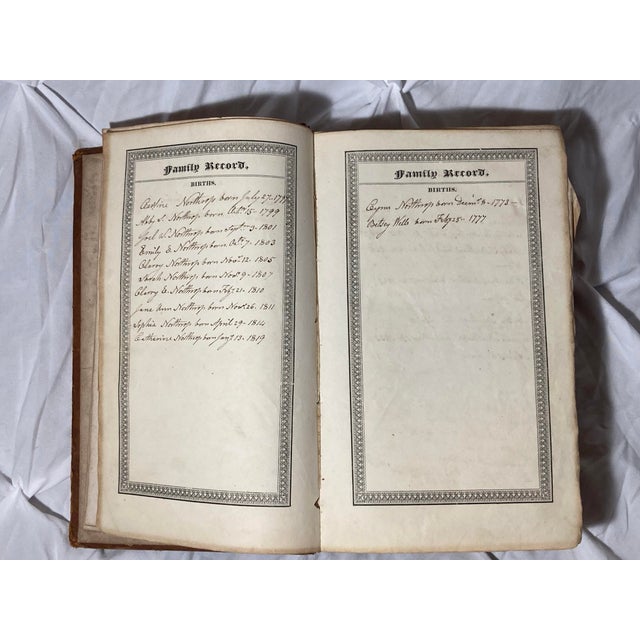 Family Record.
BIRTHS.
Northrop born July 27-
Northrop born Oct. 15-1799
Joel W. Northrop born Sept. 9-1801
Emily E Northrop born Oct. 7-1803
Clarry Northrop born Nov. 12-1805
Sarah Northrop born Nov. 9-1807
Clarry E. Northrop born Feb. 21-1810
Jane Ann Northrop born Nov. 26-1811
Sophia Northrop born April 29-1814
Catharine Northrop born Jany. 13-1819
Family Record.
BIRTHS.
Cyrus Northrop born 8-1773-
Betsey Wells born Feby 25-1777